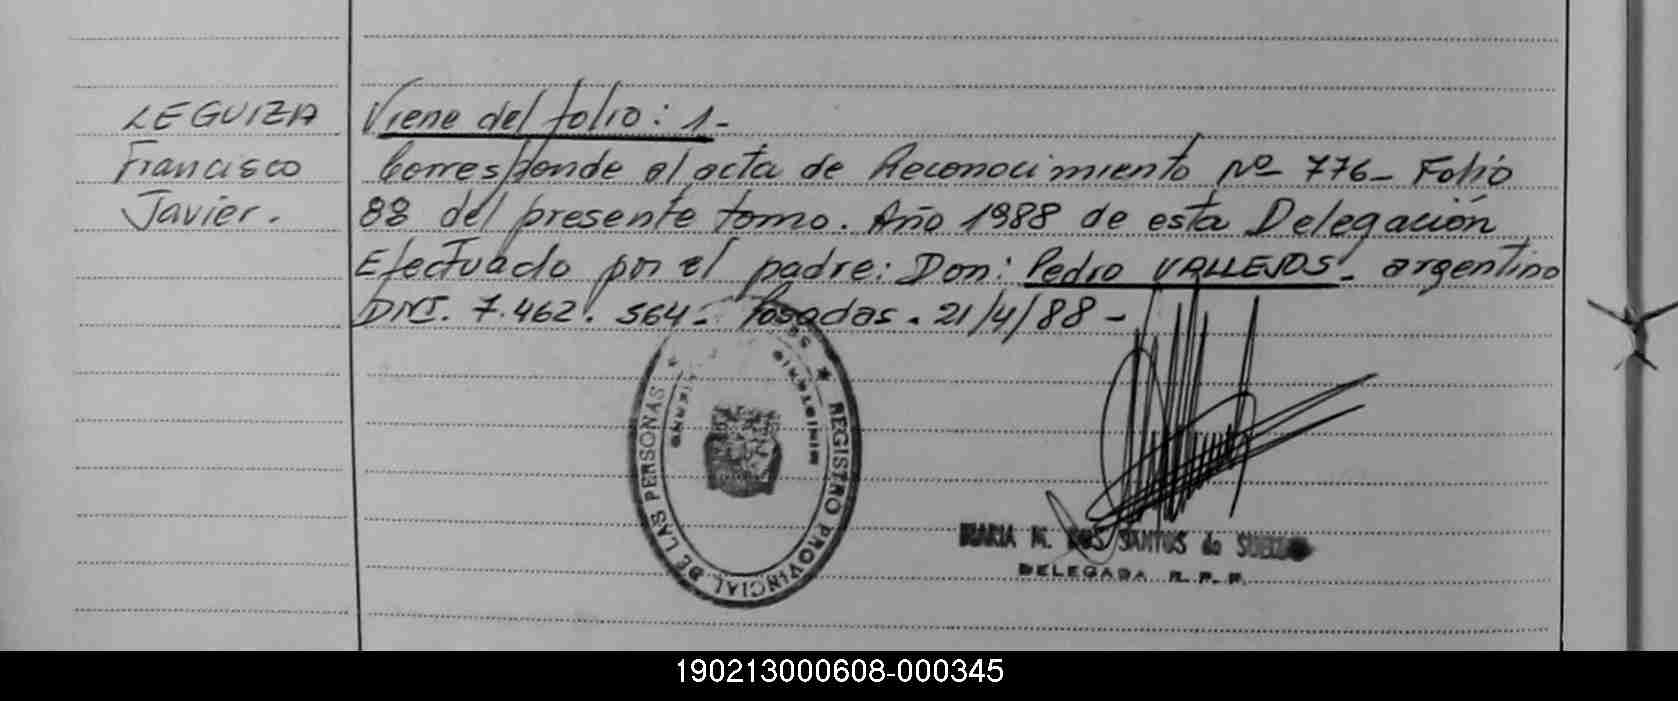 LEGUIZA
Francisco
Javier.
Viene del folio: 1-
Corresponde al acta de Reconocimiento Nº 776- Folio
88 del presente tomo. Año 1988 de esta Delegación
Efectuado por el padre: Don: Pedro VALLEJOS- argentino
DNI. 7.462.564- Posadas. 21/4/88-
REGISTRO PROVINCIAL DE LAS PERSONAS
MINISTERIO
MARIA M. DOS SANTOS de
DELEGADA R. P. P.
190213000608-000345